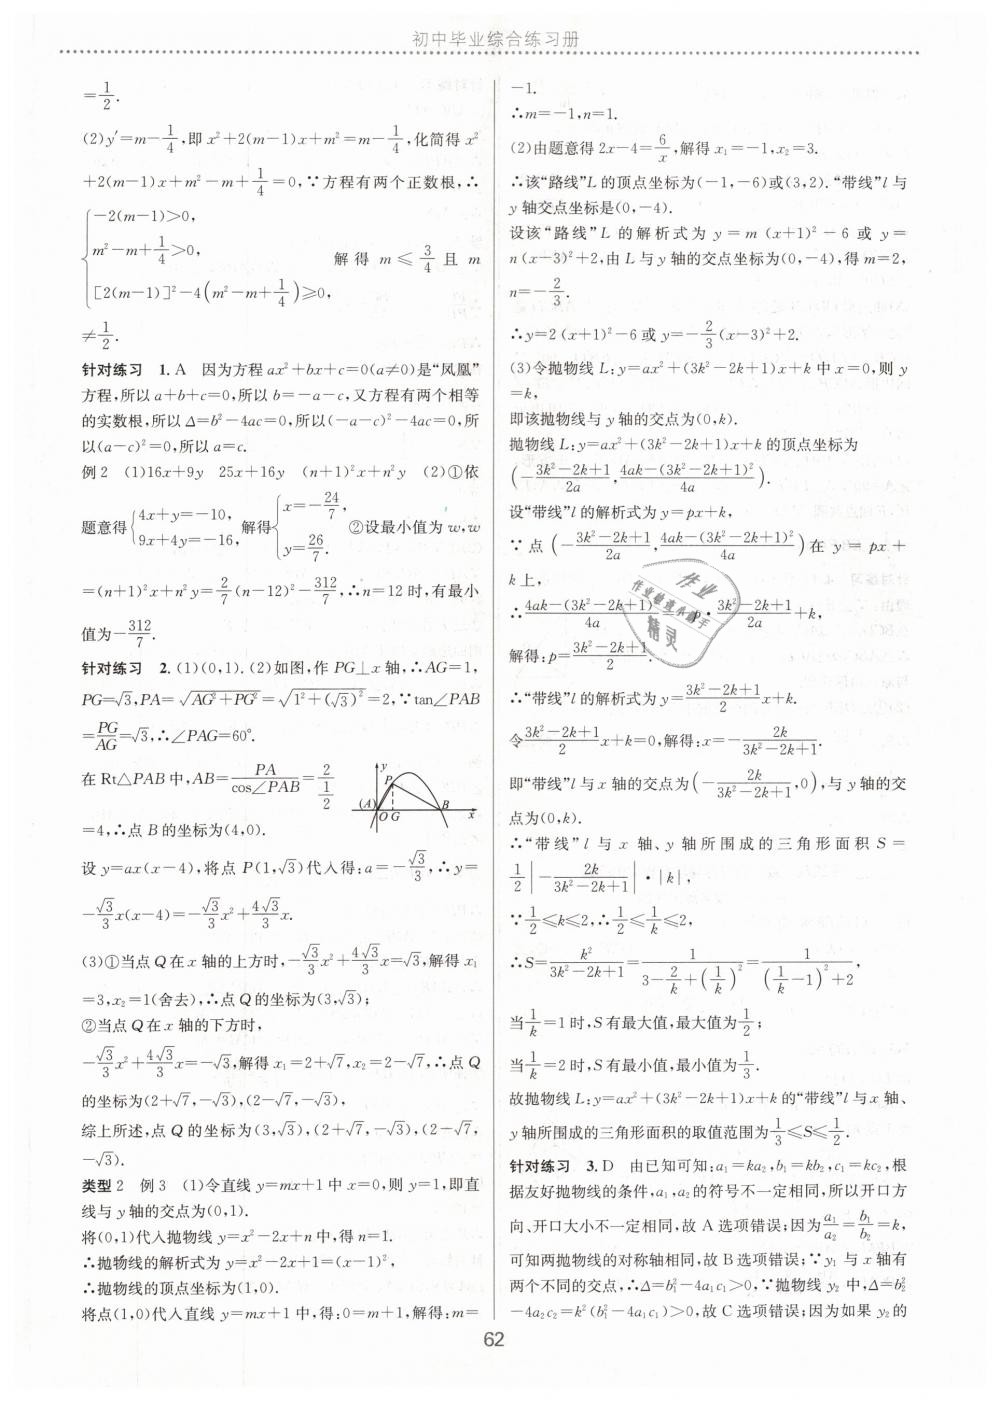 初中毕业综合练习册
=1/2.
(2)y′=m-1/4,即 x²+2(m-1)x+m²=m-1/4,化简得 x²
+2(m-1)x+m²-m+1/4=0,∵方程有两个正数根,∴
{-2(m-1)>0,
m²-m+1/4>0,
[2(m-1)]²-4(m²-m+1/4)≥0,
解得 m≤3/4 且 m
≠1/2.
针对练习 1. A 因为方程 ax²+bx+c=0(a≠0)是“凤凰”
方程,所以 a+b+c=0,所以 b=-a-c,又方程有两个相等
的实数根,所以 Δ=b²-4ac=0,所以(-a-c)²-4ac=0,所
以(a-c)²=0,所以 a=c.
例 2 (1)16x+9y 25x+16y (n+1)²x+n²y (2)①依
题意得{4x+y=-10, 9x+4y=-16, 解得{x=-24/7, y=26/7. ②设最小值为 w,w
=(n+1)²x+n²y=2/7(n-12)²-312/7,∴n=12 时,有最小
值为-312/7.
针对练习 2. (1)(0,1). (2)如图,作 PG⊥x 轴,∴AG=1,
PG=√3,PA=√(AG²+PG²)=√(1²+(√3)²)=2,∵tan∠PAB
=PG/AG=√3,∴∠PAG=60°.
在 Rt△PAB 中,AB=PA/cos∠PAB=2/(1/2)
=4,∴点 B 的坐标为(4,0).
y
P
(A)
O
G
B
x
设 y=ax(x-4),将点 P(1,√3)代入得:a=-√3/3,∴y=
-√3/3x(x-4)=-√3/3x²+4√3/3x.
(3)①当点 Q 在 x 轴的上方时,-√3/3x²+4√3/3x=√3,解得 x₁
=3,x₂=1(舍去),∴点 Q 的坐标为(3,√3);
②当点 Q 在 x 轴的下方时,
-√3/3x²+4√3/3x=-√3,解得 x₁=2+√7,x₂=2-√7,∴点 Q
的坐标为(2+√7,-√3),(2-√7,-√3),
综上所述,点 Q 的坐标为(3,√3),(2+√7,-√3),(2-√7,
-√3).
类型 2 例 3 (1)令直线 y=mx+1 中 x=0,则 y=1,即直
线与 y 轴的交点为(0,1).
将(0,1)代入抛物线 y=x²-2x+n 中,得 n=1.
∴抛物线的解析式为 y=x²-2x+1=(x-1)²,
∴抛物线的顶点坐标为(1,0).
将点(1,0)代入直线 y=mx+1 中,得:0=m+1,解得:m=
-1.
∴m=-1,n=1.
(2)由题意得 2x-4=6/x,解得 x₁=-1,x₂=3.
∴该“路线”L 的顶点坐标为(-1,-6)或(3,2). “带线”l 与
y 轴交点坐标是(0,-4).
设该“路线”L 的解析式为 y=m(x+1)²-6 或 y=
n(x-3)²+2,由 L 与 y 轴的交点坐标为(0,-4),得 m=2,
n=-2/3.
∴y=2(x+1)²-6 或 y=-2/3(x-3)²+2.
(3)令抛物线 L:y=ax²+(3k²-2k+1)x+k 中 x=0,则 y
=k,
即该抛物线与 y 轴的交点为(0,k).
抛物线 L:y=ax²+(3k²-2k+1)x+k 的顶点坐标为
(-(3k²-2k+1)/2a,(4ak-(3k²-2k+1)²)/4a).
设“带线”l 的解析式为 y=px+k,
∵点(-(3k²-2k+1)/2a,(4ak-(3k²-2k+1)²)/4a)在 y=px+
k 上,
∴(4ak-(3k²-2k+1)²)/4a=-p·(3k²-2k+1)/2a+k,
解得:p=(3k²-2k+1)/2.
∴“带线”l 的解析式为 y=(3k²-2k+1)/2x+k.
令(3k²-2k+1)/2x+k=0,解得:x=-2k/(3k²-2k+1).
即“带线”l 与 x 轴的交点为(-2k/(3k²-2k+1),0),与 y 轴的交
点为(0,k).
∴“带线”l 与 x 轴、y 轴所围成的三角形面积 S=
1/2|-2k/(3k²-2k+1)|·|k|,
∵1/2≤k≤2,∴1/2≤1/k≤2,
∴S=k²/(3k²-2k+1)=1/(3-2/k+(1/k)²)=1/((1/k-1)²+2),
当1/k=1 时,S 有最大值,最大值为1/2;
当1/k=2 时,S 有最小值,最小值为1/3.
故抛物线 L:y=ax²+(3k²-2k+1)x+k 的“带线”l 与 x 轴、
y 轴所围成的三角形面积的取值范围为1/3≤S≤1/2.
针对练习 3. D 由已知可知:a₁=ka₂,b₁=kb₂,c₁=kc₂,根
据友好抛物线的条件,a₁,a₂的符号不一定相同,所以开口方
向、开口大小不一定相同,故 A 选项错误;因为a₁/a₂=b₁/b₂=k,
可知两抛物线的对称轴相同,故 B 选项错误;∵y₁ 与 x 轴有
两个不同的交点,∴Δ=b₁²-4a₁c₁>0,∵抛物线 y₂ 中,Δ=b₂²
-4a₂c₂=k²(b₁²-4a₁c₁)>0,故 C 选项错误;因为如果 y₂的
作业
作业检查小助手
精灵
62